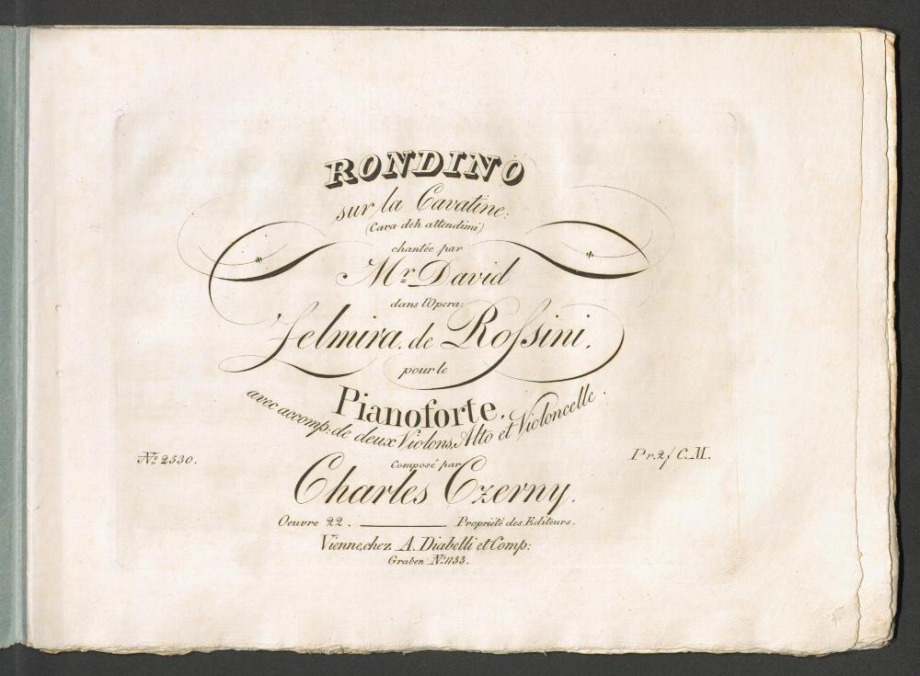 RONDINO
sur la Cavatine:
(Cara deh attendimi)
chantée par
Mr. David
dans l'Opera:
Zelmira. de Rossini.
pour le
Pianoforte.
avec accomp. de deux Violons, Alto et Violoncelle.
No. 2530.
Pr. 2 f C. M.
Composé par
Charles Czerny.
Oeuvre 22. Propriété des Editeurs.
Vienne, chez A. Diabelli et Comp:
Graben No. 1133.